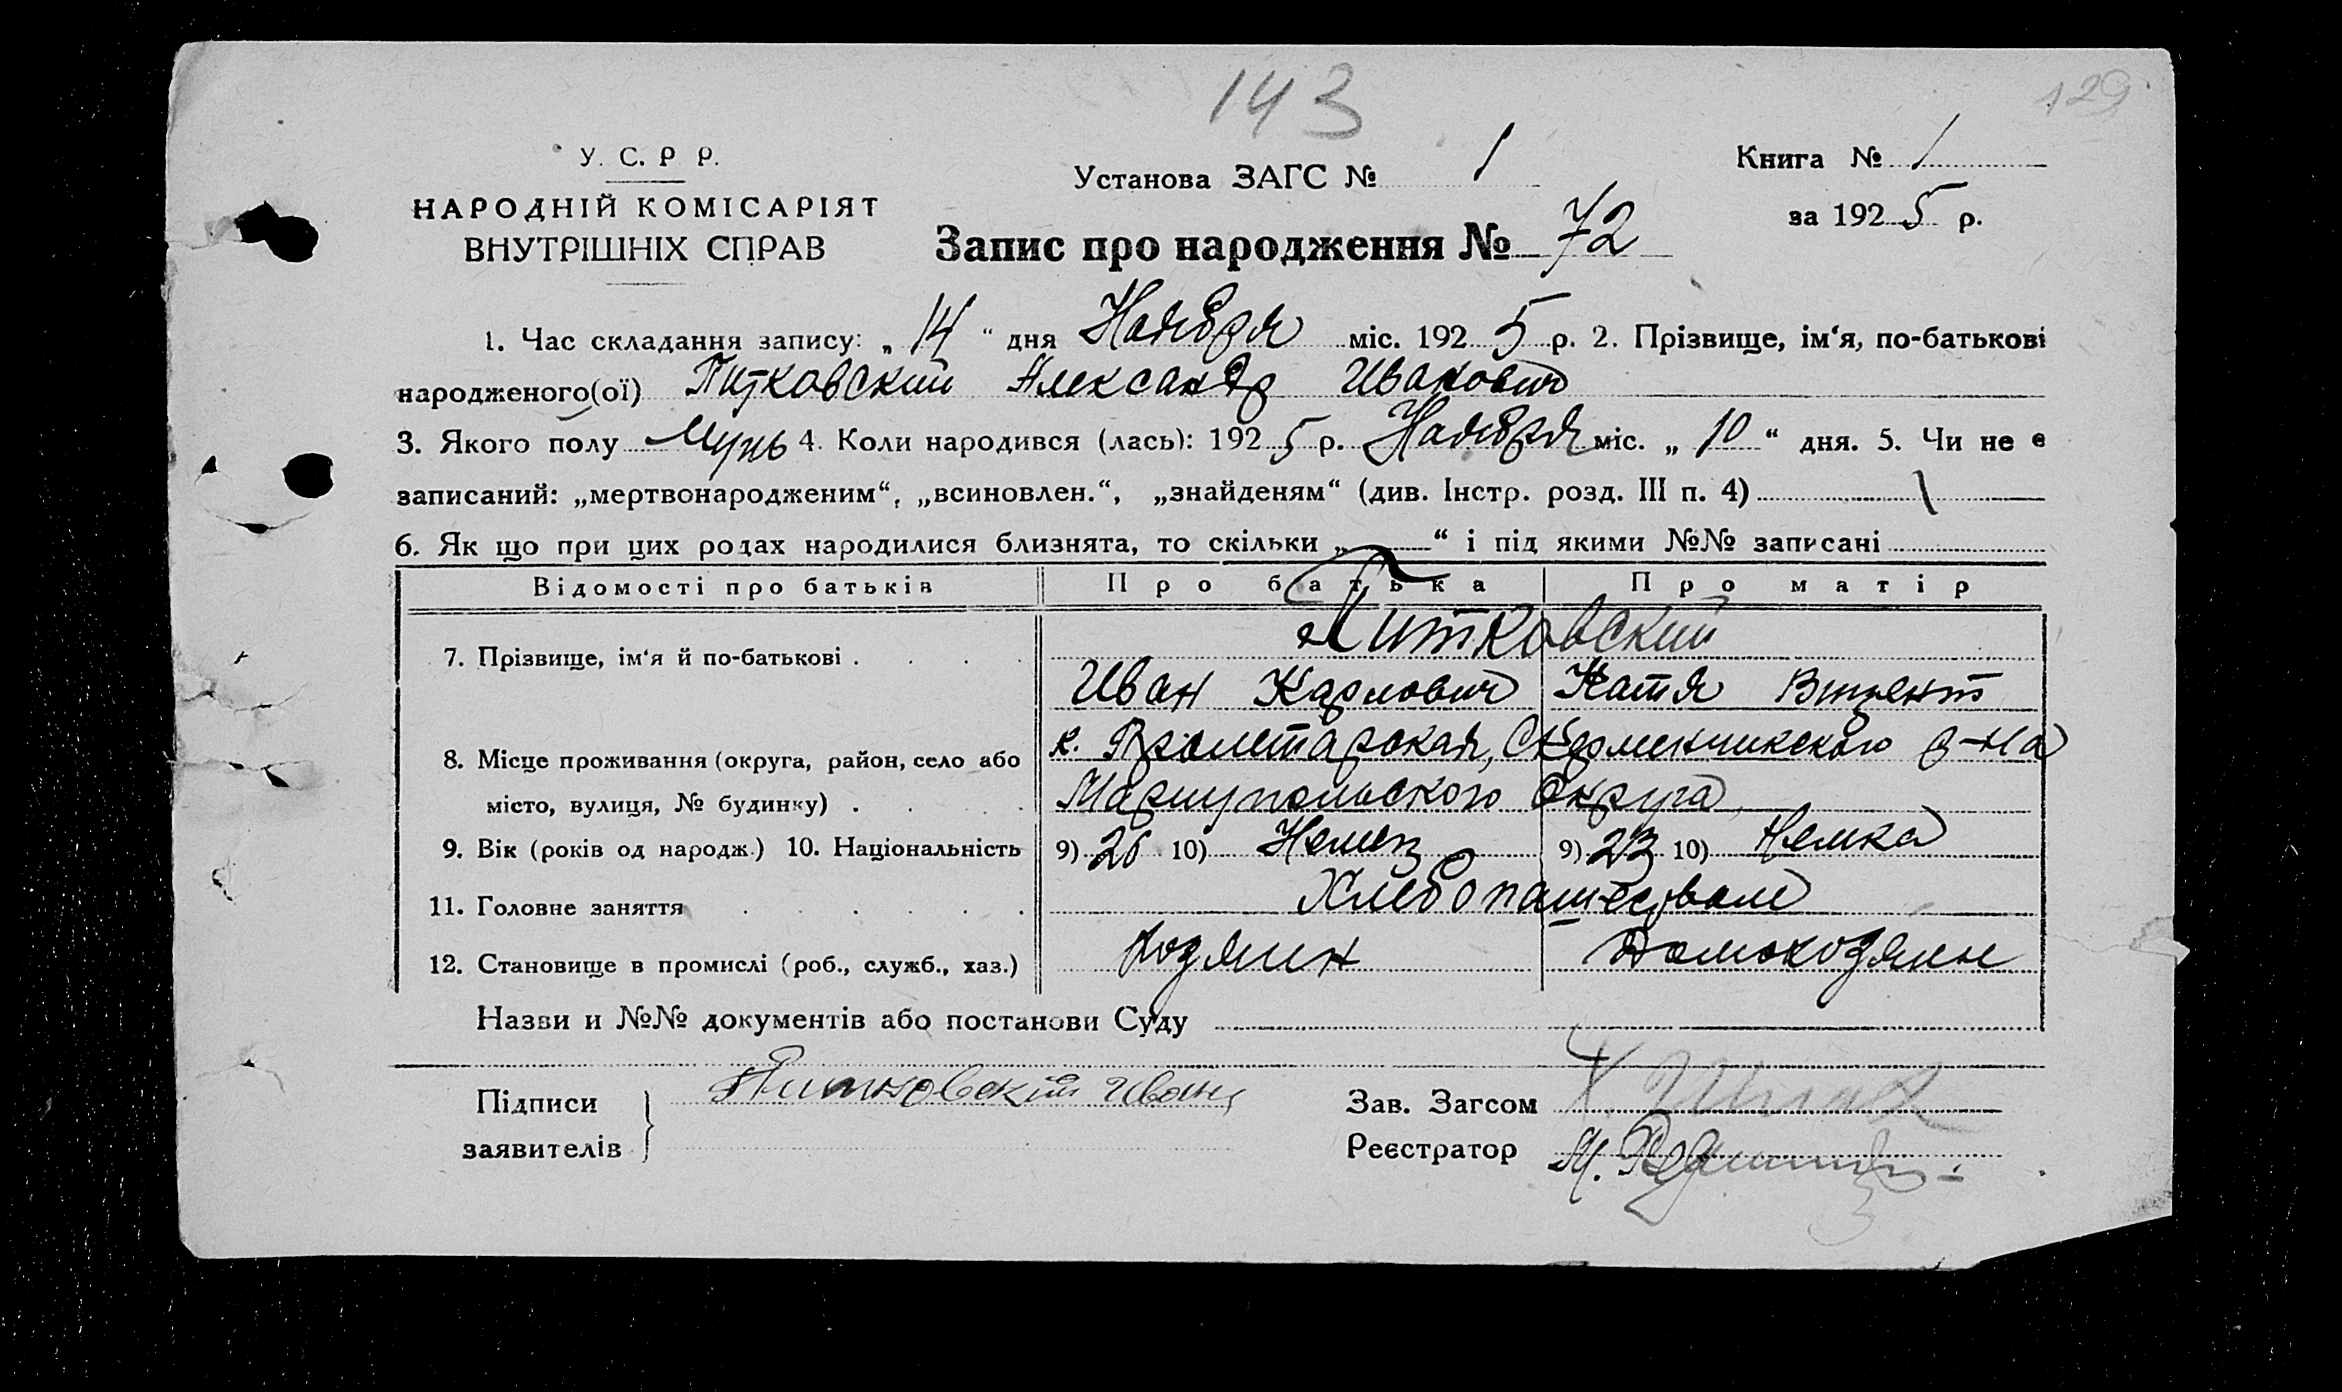 143
129
У. С. Р Р.
НАРОДНІЙ КОМІСАРІЯТ
ВНУТРІШНІХ СПРАВ
Установа ЗАГС № 1
Книга № 1
за 1925 р.
Запис про народження № 72
1. Час складання запису: „14“ дня Ноября міс. 1925 р. 2. Прізвище, ім'я, по-батькові
народженого(ої) Питковский Александр Иванович
3. Якого полу Мужь 4. Коли народився (лась): 1925 р. Ноября міс. „10“ дня. 5. Чи не є
записаний: „мертвонародженим“, „всиновлен.“, „знайденям“ (див. Інстр. розд. III п. 4)
6. Як що при цих родах народилися близнята, то скільки „ “ і під якими №№ записані
Відомості про батьків Про батька Про матір
7. Прізвище, ім'я й по-батькові . . . . Питковский
Иван Карлович Катя
8. Місце проживання (округа, район, село або к. Пролетарская, р-на
місто, вулиця, № будинку) . . . Мариупольского Округа
9. Вік (років од народж.) 10. Національність 9) 26 10) Немец 9) 23 10) Немка
11. Головне заняття . . . . . . Хлебопашество
12. Становище в промислі (роб., служб., хаз.) Хозяин Домохозяин
Назви и №№ документів або постанови Суду
Підписи Питковский Иван
заявителів
Зав. Загсом
Реєстратор М.